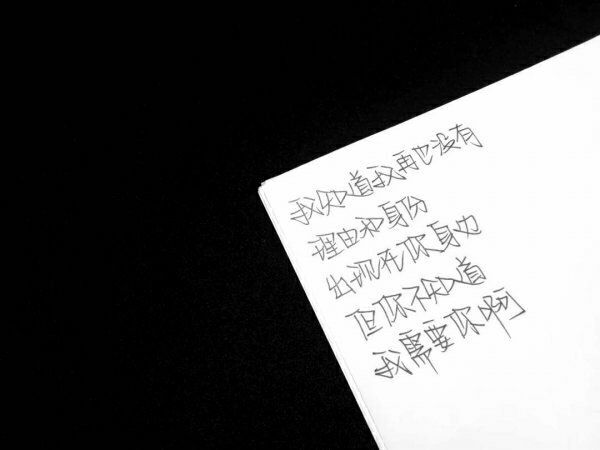 我知道我再也没有
理由和身份
出现在你身边
但你不知道
我需要你啊